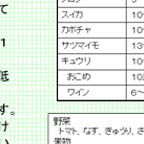 て
スイカ 10
カボチャ 10
1
サツマイモ 13
キュウリ 10
低
おこめ 10
ワイン 6～
す。
け
野菜
トマト, なす, きゅうり, さ
果物